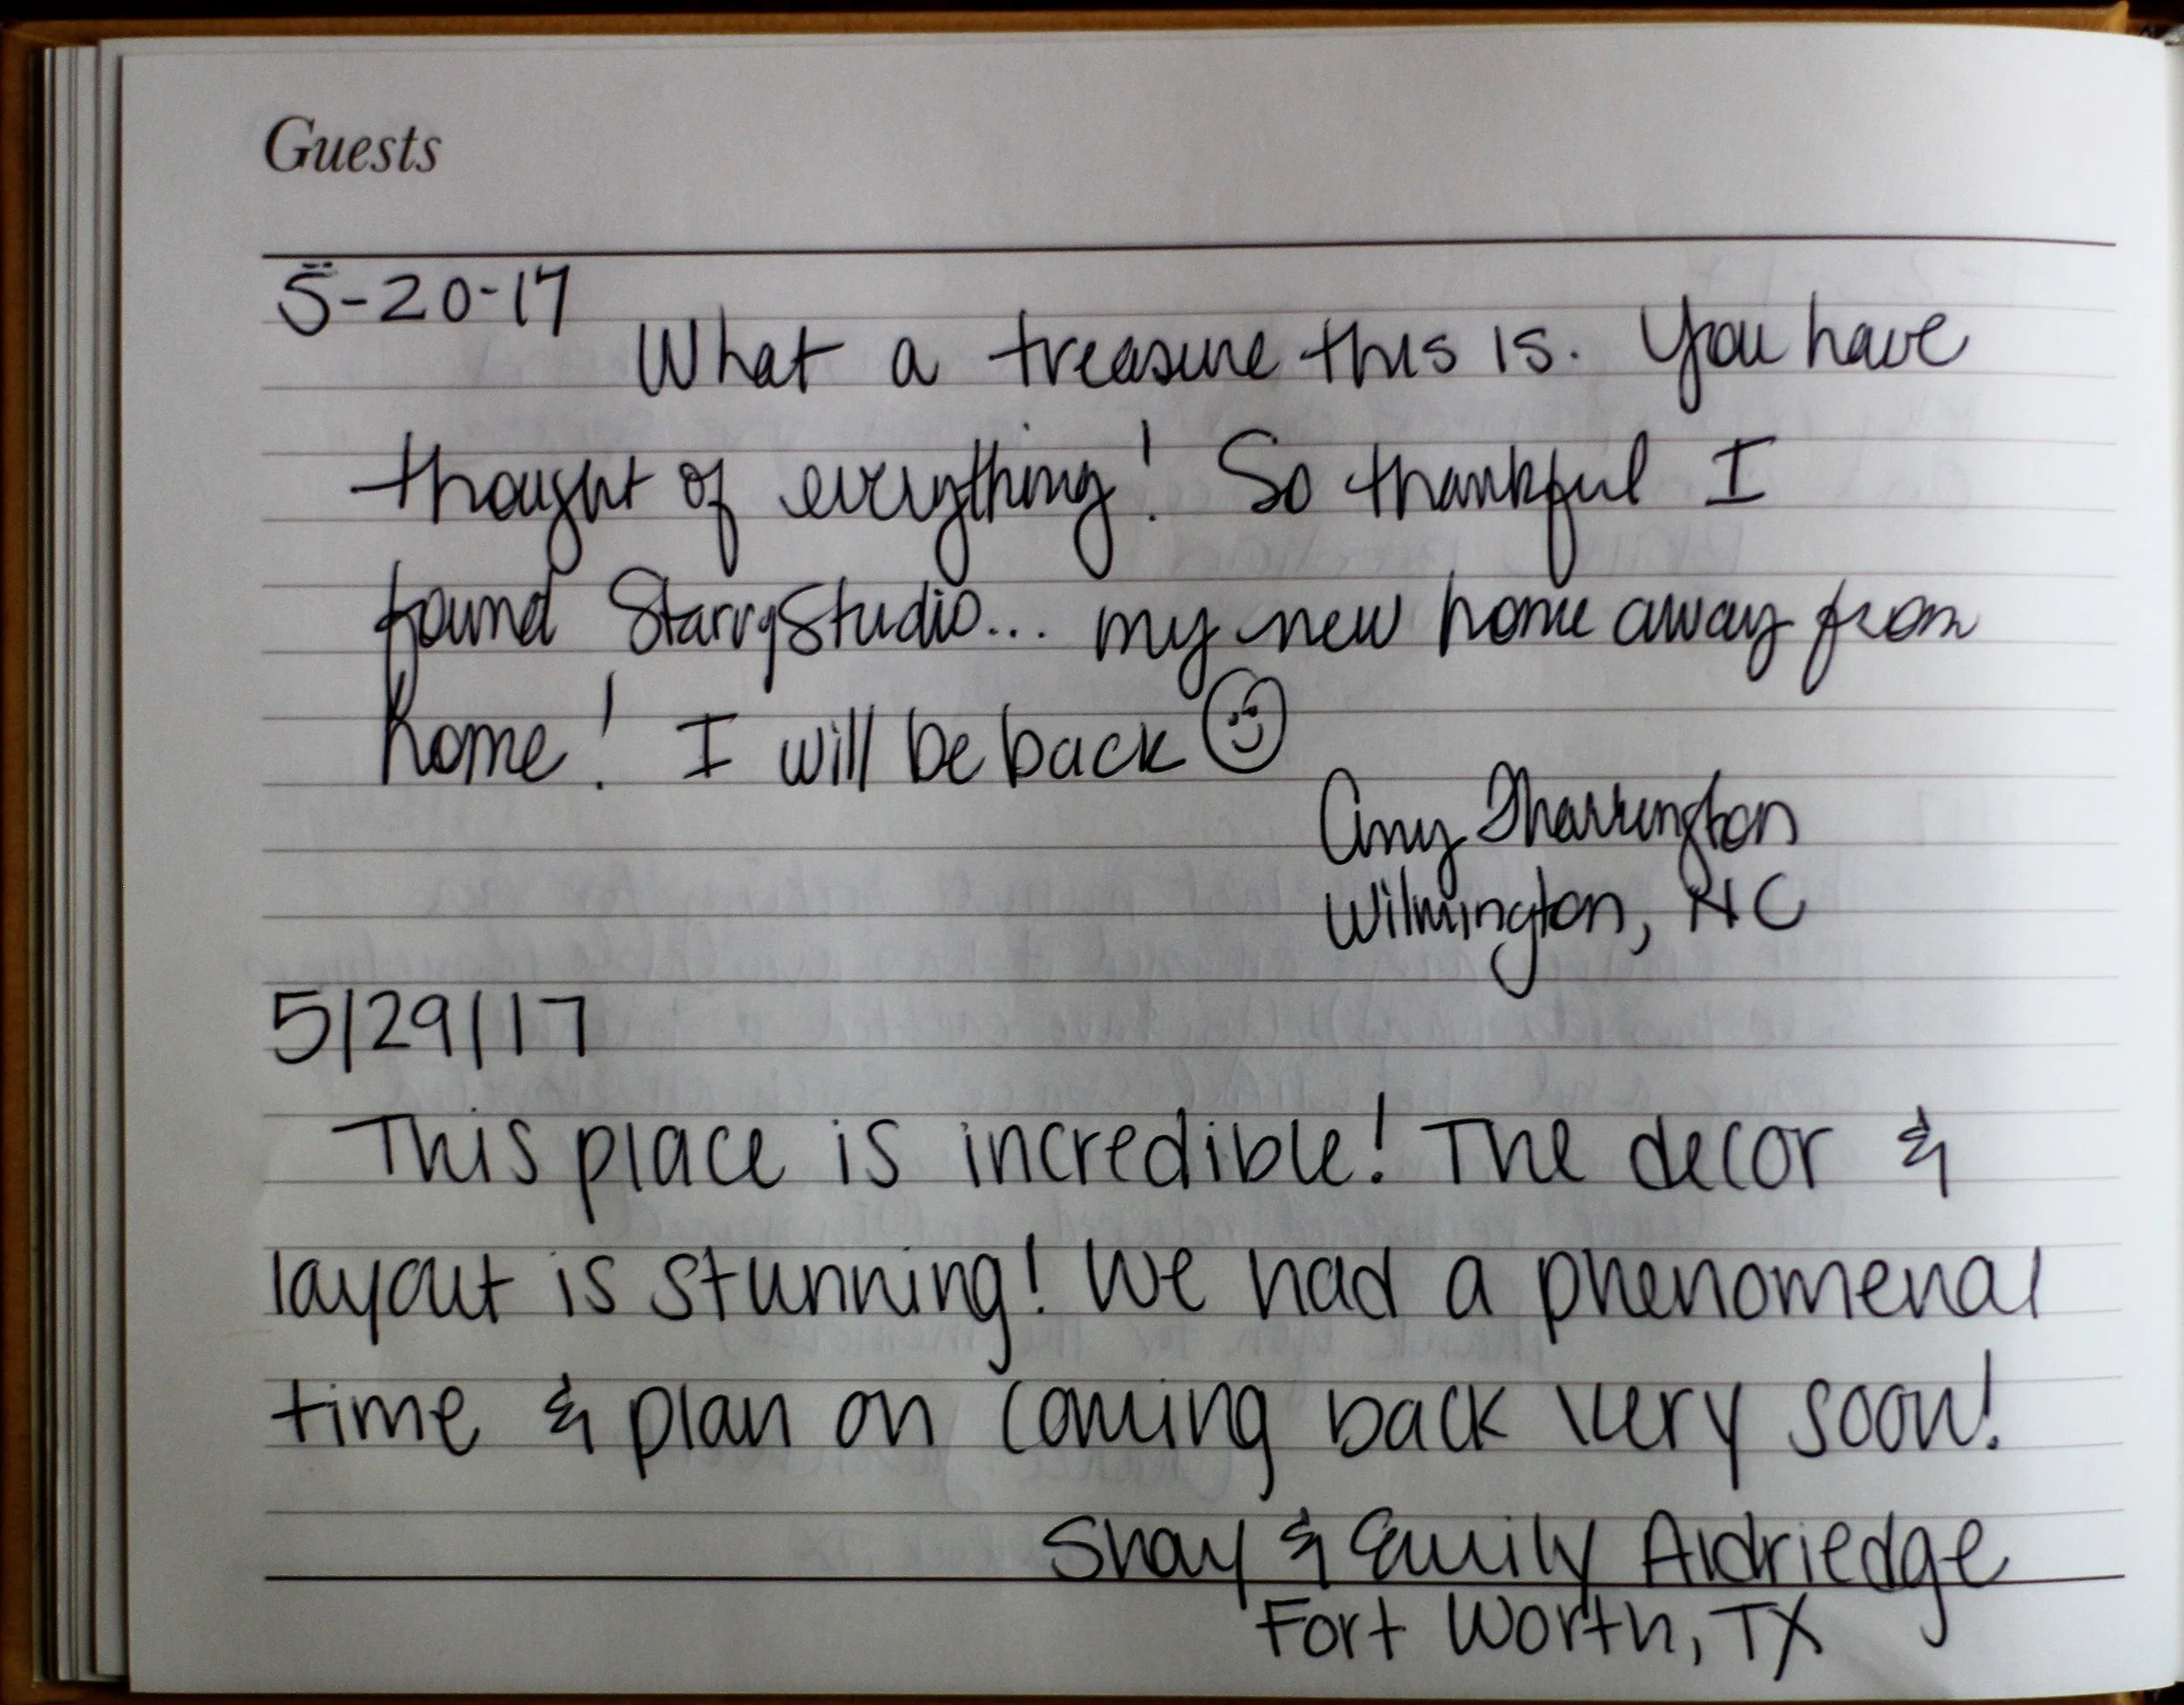 Guests
5-20-17
What a treasure this is. You have
thought of everything! So thankful I
found StarryStudio... my new home away from
home! I will be back
Amy Tharrington
Wilmington, NC
5/29/17
This place is incredible! The decor &
layout is stunning! We had a phenomenal
time & plan on coming back very soon!
Shay & Emily Aldriedge
Fort Worth, TX